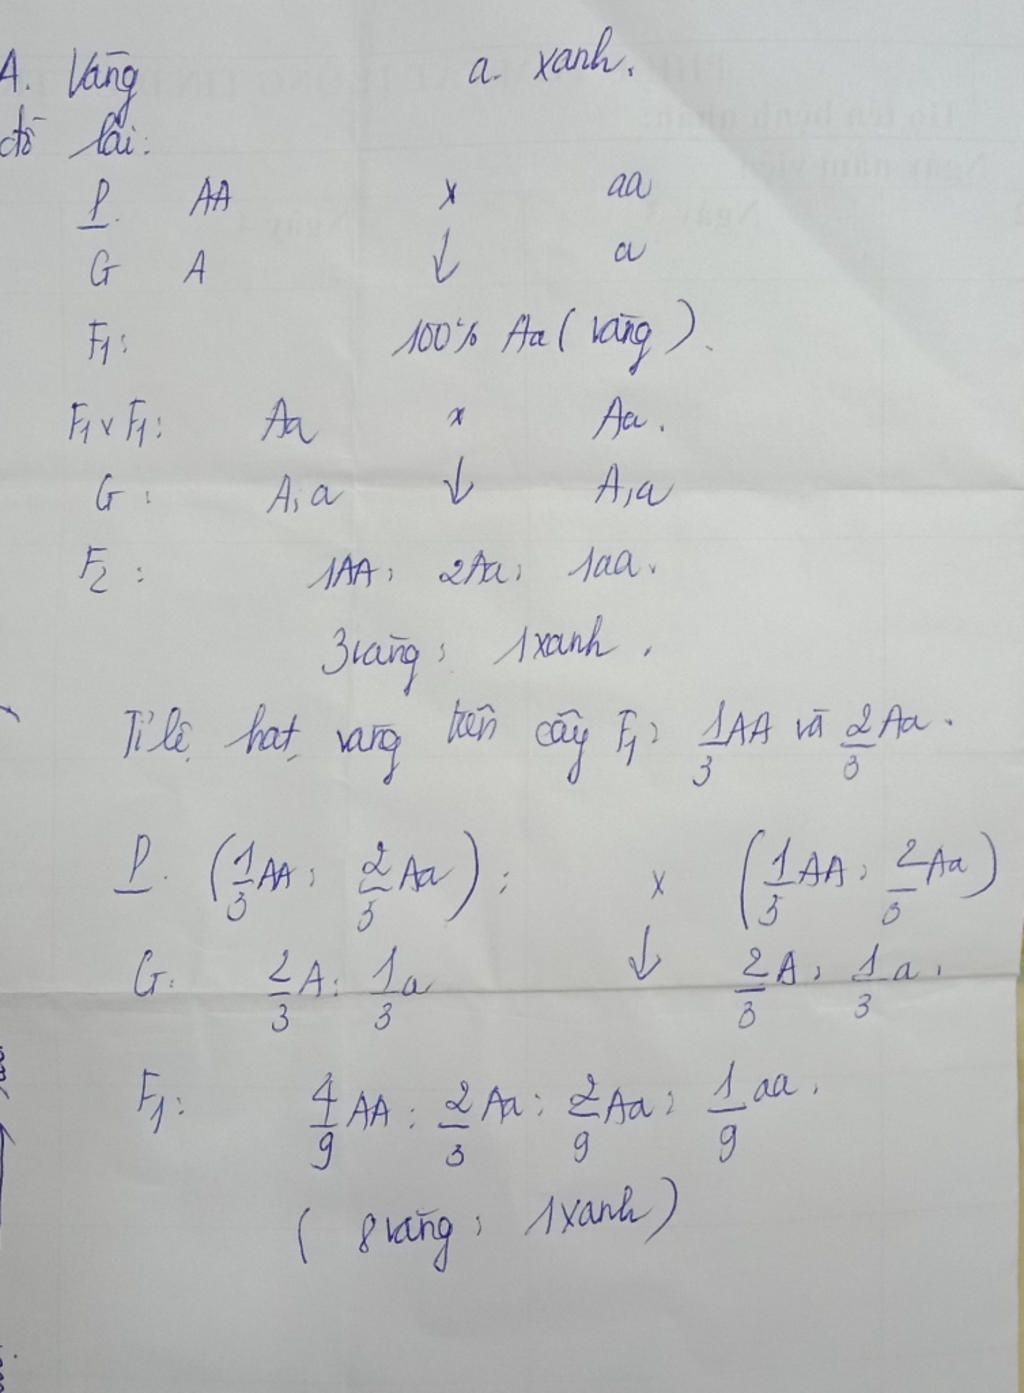 A. Vàng a. xanh.
đồ lai:
P. AA x aa
G A ↓ a
F1: 100% Aa (vàng).
F1 x F1: Aa x Aa.
G: A, a ↓ A, a
F2: 1AA: 2Aa: 1aa.
3 vàng: 1 xanh.
Tỉ lệ hạt vàng trên cây F1: 1/3 AA và 2/3 Aa.
P. (1/3 AA: 2/3 Aa): x (1/3 AA: 2/3 Aa)
G: 2/3 A: 1/3 a ↓ 2/3 A: 1/3 a.
F1: 4/9 AA: 2/3 Aa: 2/9 Aa: 1/9 aa.
(8 vàng: 1 xanh)